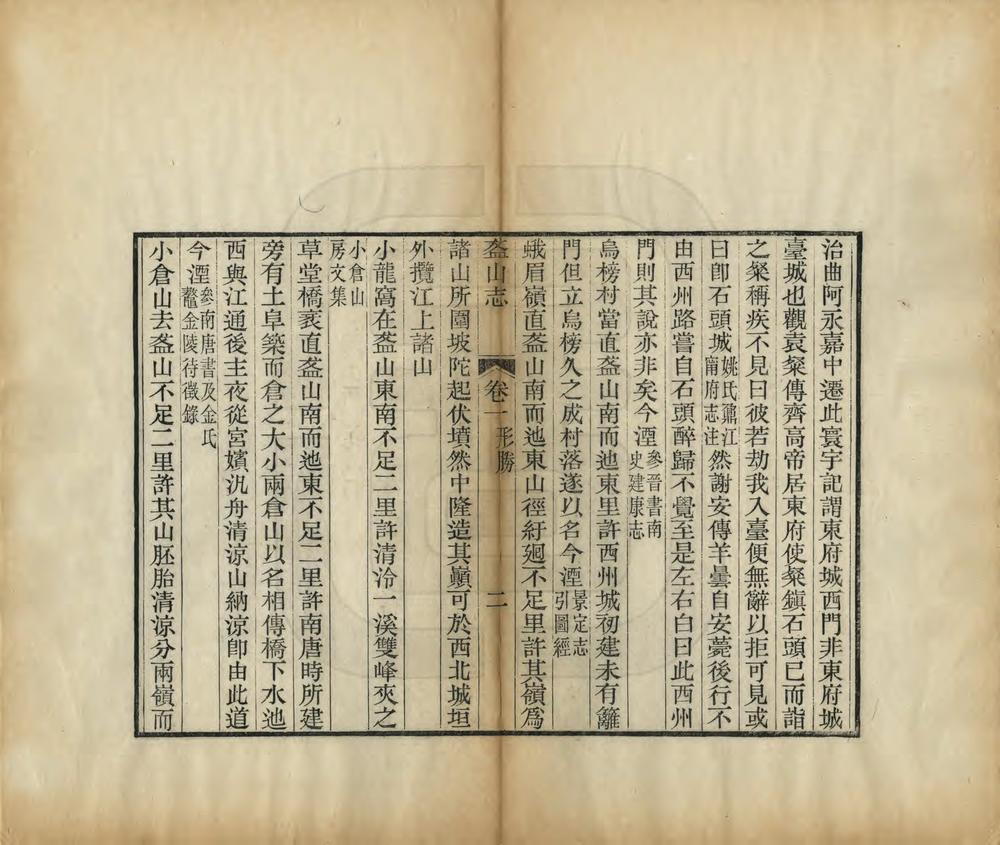 治曲阿永嘉中遷此寰宇記謂東府城西門非東府城
臺城也觀袁粲傳齊高帝居東府使粲鎭石頭已而詣
之粲稱疾不見曰彼若劫我入臺便無辭以拒可見或
曰卽石頭城姚氏鼐江甯府志注然謝安傳羊曇自安薨後行不
由西州路嘗自石頭醉歸不覺至是左右白曰此西州
門則其說亦非矣今湮參晉書南史建康志
烏榜村當直盋山南而迆東里許西州城初建未有籬
門但立烏榜久之成村落遂以名今湮景定志引圖經
蛾眉嶺直盋山南而迆東山徑紆廻不足里許其嶺爲
盋山志
卷一 形勝
二
諸山所圍坡陀起伏墳然中隆造其巔可於西北城垣
外攬江上諸山
小龍窩在盋山東南不足二里許清泠一溪雙峰夾之
小倉山房文集
草堂橋袤直盋山南而迆東不足二里許南唐時所建
旁有土阜築而倉之大小兩倉山以名相傳橋下水迆
西與江通後主夜從宮嬪汎舟清涼山納涼卽由此道
今湮參南唐書及金氏鼇金陵待徵錄
小倉山去盋山不足二里許其山胚胎清涼分兩嶺而